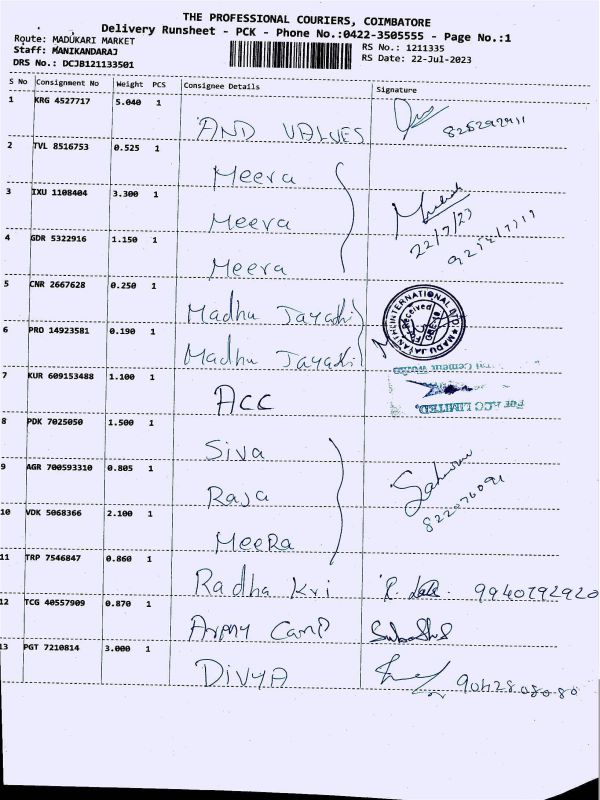 THE PROFESSIONAL COURIERS, COIMBATORE
Delivery Runsheet - PCK - Phone No.:0422-3505555 - Page No.:1
Route: MADUKARI MARKET
RS No.: 1211335
Staff: MANIKANDARAJ
RS Date: 22-Jul-2023
DRS No.: DCJB121133501
S No Consignment No Weight PCS Consignee Details Signature
1 KRG 4527717 5.040 1
AND VALVES
2 TVL 8516753 0.525 1
Meera
3 IXU 1108404 3.300 1
Meera
22/7/23
4 GDR 5322916 1.150 1
Meera
5 CNR 2667628 0.250 1
Madhu Jayadhi
MADU JAYANTHI INTERNATIONAL LTD.
Received
6 PRO 14923581 0.190 1
Madhu Jayadhi
7 KUR 609153488 1.100 1
Cement Works
ACC
For ACC LIMITED,
8 PDK 7025050 1.500 1
Siva
9 AGR 700593310 0.805 1
Raja
10 VDK 5068366 2.100 1
MeeRa
11 TRP 7546847 0.860 1
Radha Kri 9940792920
12 TCG 40557909 0.870 1
Army Camp
13 PGT 7210814 3.000 1
DIVYA 9042808080